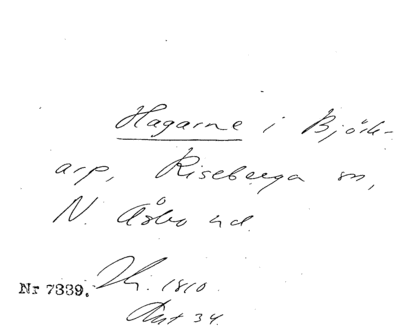 Hagarne i Björk-
arp, Riseberga sn,
N. Åsbo hd.
Nr 7339. 1810.
Akt 34.